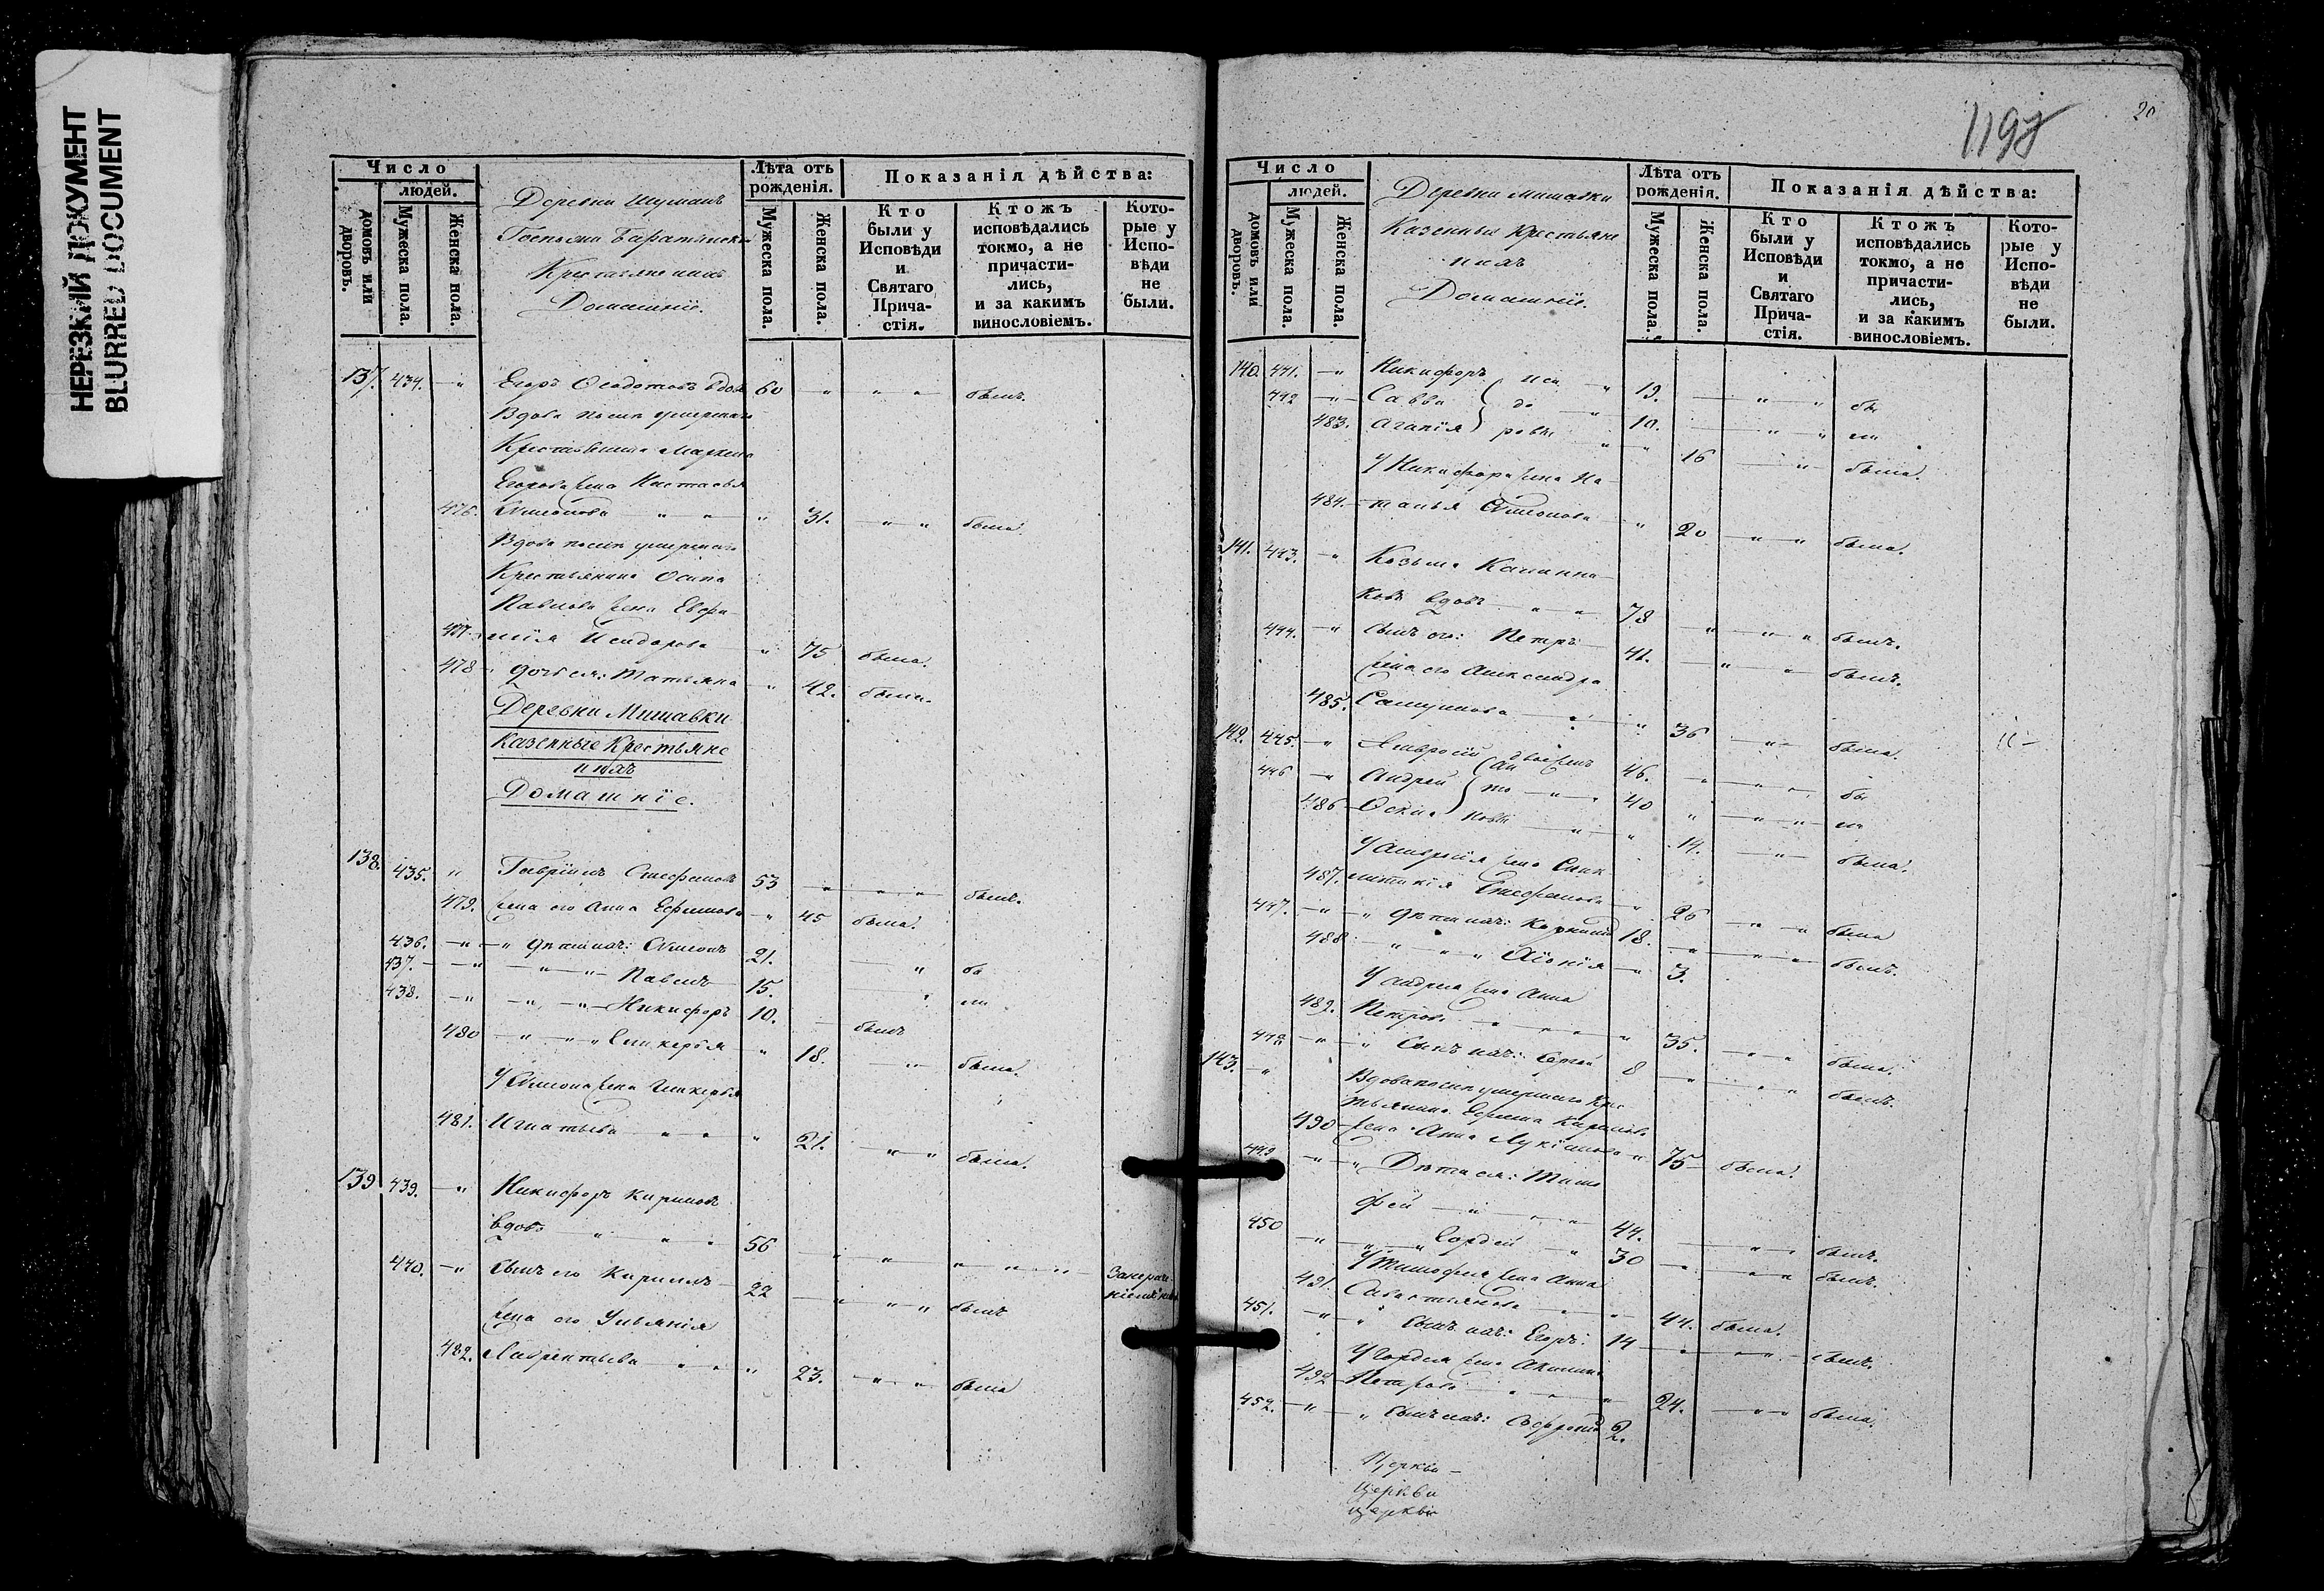 НЕРЕЗКИЙ ДОКУМЕНТ
BLURRED DOCUMENT
Число
людей.
домовъ или дворовъ.
Мужеска пола.
Женска пола.
Деревни
Крестьяне
Домашніе.
Лѣта отъ рожденія.
Мужеска пола.
Женска пола.
Показанія дѣйства:
Кто были у Исповѣди и Святаго Прича-стія.
Ктожъ исповѣдались токмо, а не причасти-лись, и за какимъ винословіемъ.
Кото-рые у Испо-вѣди не были.
137. 434. Егоръ 60 былъ.
Вдова послѣ умершаго
Егорова жена Настасья
476. Симонова 31. была.
Вдова послѣ умершаго
Крестьянина Осипа
Павлова жена Евфи-
477. мія Исидорова 75 была.
478 дочь ея: Татьяна 42. была.
Деревни Мишавки
Казенные Крестьяне
и ихъ
Домашніе.
138. 435. Гавріилъ Стефановъ 53 былъ.
479. жена его Анна Ефимова 45 была.
436. дѣти ихъ: Симонъ 21. бы
437. Павелъ 15. ли
438. Никифоръ 10. былъ
480 Гликерья 18. была.
У Симона жена Гликерья
481. Игнатьева 21. была.
139 439. Никифоръ Кириловъ
вдовъ 56
440. сынъ его Кирилъ 22 былъ
жена его Ульянія
482. Лаврентьева 23. была
1197
20
Число
людей.
домовъ или дворовъ.
Мужеска пола.
Женска пола.
Деревни Мишавки
Казенныя Крестьяне
и ихъ
Домашніе.
Лѣта отъ рожденія.
Мужеска пола.
Женска пола.
Показанія дѣйства:
Кто были у Исповѣди и Святаго Прича-стія.
Ктожъ исповѣдались токмо, а не причасти-лись, и за какимъ винословіемъ.
Кото-рые у Испо-вѣди не были.
140. 441. Никифоръ Иси 19. бы
442 Савва до 10. ли
483. Агапія ровы 16 была.
У Никифора жена На-
484. талья Симонова 20 была.
141. 443. Козьма Калинни-
ковъ вдовъ 78 былъ.
444. сынъ его: Петръ 41. былъ.
жена его Александра
485. Самуилова 36 была.
142. 445. Амвросій 46. бы
446 Андрей 40 ли
486 14. была.
У Амвросія жена
487. Стефанова 26 была
447. дѣти ихъ: Корнилій 18. былъ.
488 Хіонія 3.
У Андрея жена Анна
489. Петрова 35. была.
448 сынъ ихъ: Сергей 8 былъ.
143. Вдова послѣ умершаго Крес
тьянина Ефима Кирилова
490 жена Анна 75 была.
449 Дѣти ея: Тимо
фей 44. былъ.
450 Гордей 30 былъ.
У Тимофея жена Анна
491 Савастьянова 44. была.
451. сынъ ихъ: Егоръ: 14 былъ.
У Гордея жена Акилина
492 Петрова 24. была.
452. сынъ ихъ: Софроній 2.
Церкви
церкви
церкви